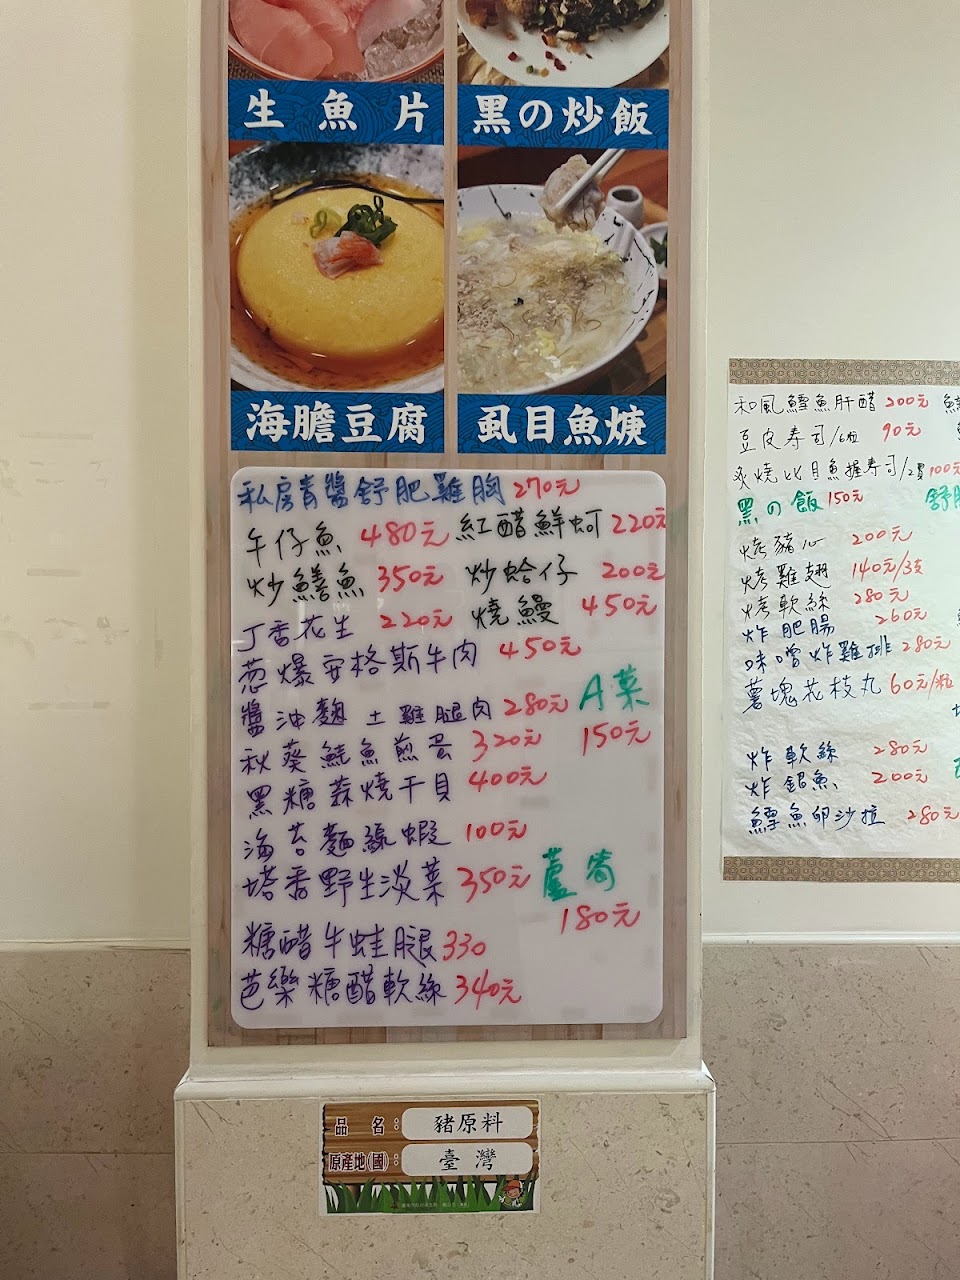 生魚片
黑の炒飯
海膽豆腐
虱目魚焿
私房青醬舒肥雞胸 270元
午仔魚 480元 紅醋鮮蚵 220元
炒鱔魚 350元 炒蛤仔 200元
丁香花生 220元 燒鰻 450元
葱爆安格斯牛肉 450元
醬油麴土雞腿肉 280元
A菜
150元
秋葵鮭魚煎蛋 320元
黑糖蒜燒干貝 400元
海苔麵線蝦 100元
塔香野生淡菜 350元
蘆筍
180元
糖醋牛蛙腿 330
芭樂糖醋軟絲 340元
品名：豬原料
原產地(國)：臺灣
和風鱈魚肝醋 200元
豆皮壽司/6粒 90元
炙燒比目魚握壽司/2貫 100元
黑の飯 150元
烤豬心 200元
烤雞翅 140元/3支
烤軟絲 280元
炸肥腸 260元
味噌炸雞排 280元
薯塊花枝丸 60元/粒
炸軟絲 280元
炸䱽魚 200元
鱈魚卵沙拉 280元